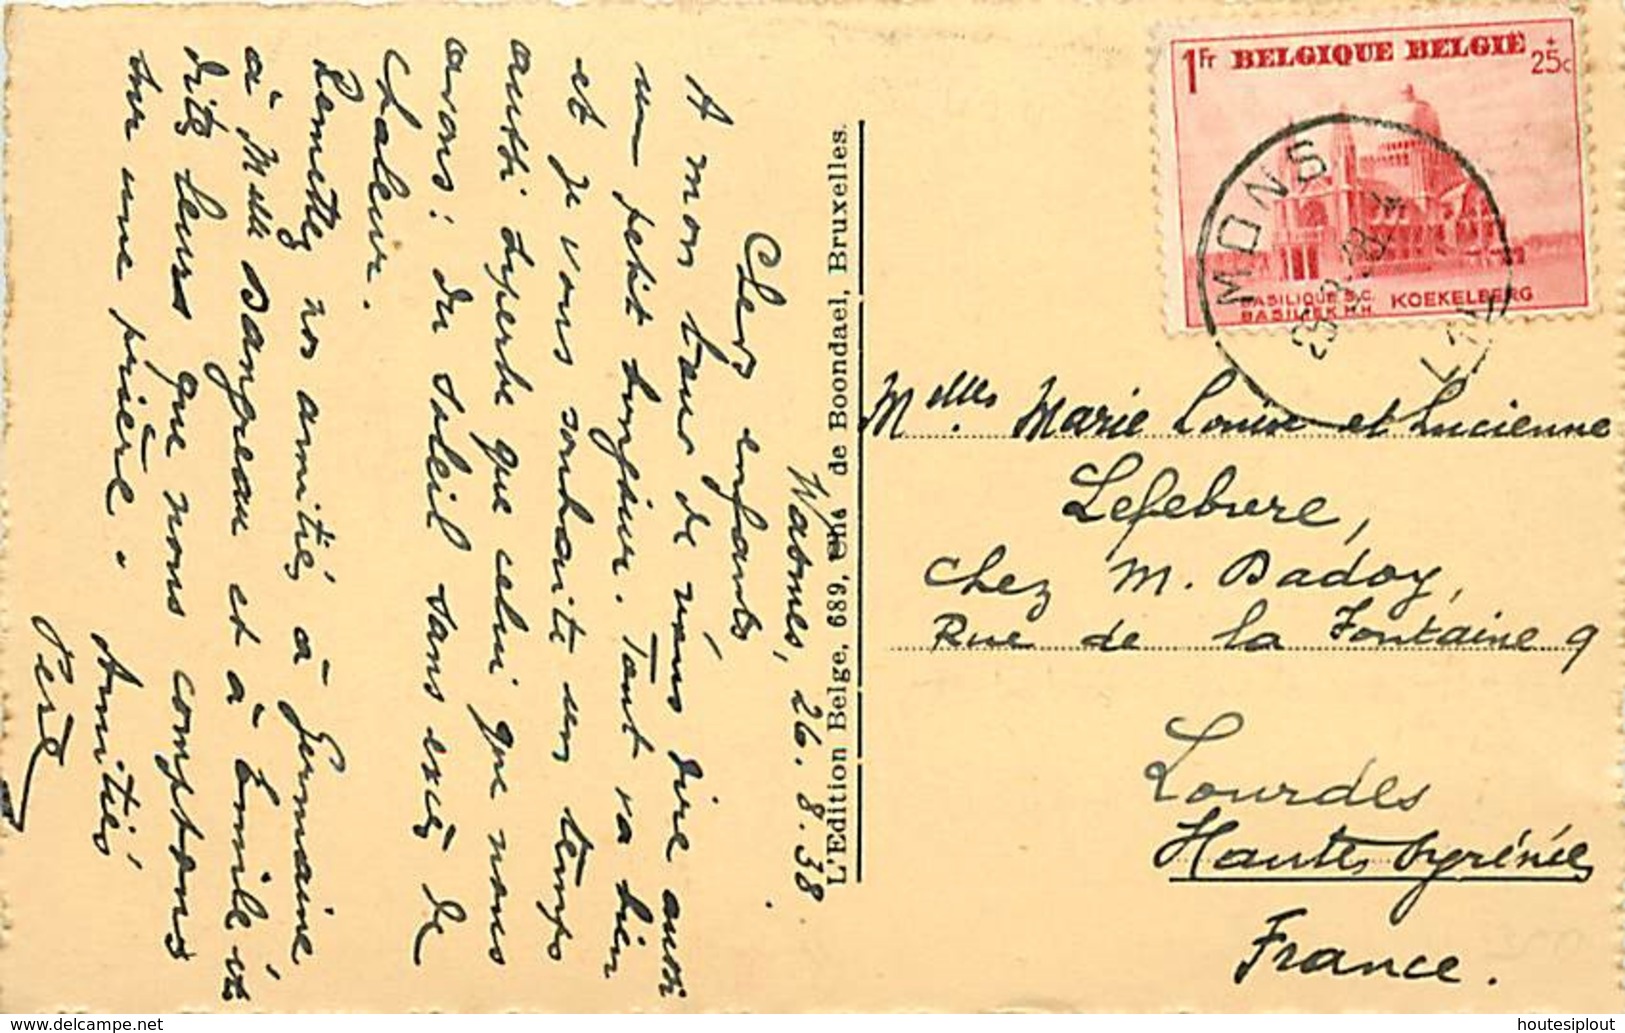 Wasmes, 26.8.38.
Chers enfants
A mon tour de vous dire aussi
un petit bonjour. Tout va bien
et je vous souhaite un temps
aussi superbe que celui que nous
avons: du soleil sans excès de
chaleur.
Remettez nos amitiés à Germaine
à Melle Dangreau et à Emile et
dites leurs que nous comptons
sur une prière. Amitiés
Père
L'Edition Belge, 689, Chée de Boondael, Bruxelles.
1Fr BELGIQUE BELGIE + 25c
BASILIQUE S.C. KOEKELBERG
BASILIEK H.H.
MONS
Melles Marie Louise et Lucienne
Lefebvre,
Chez M. Badoy,
Rue de la Fontaine 9
Lourdes
Hautes Pyrénées
France.
delcampe.net
houtesiplout